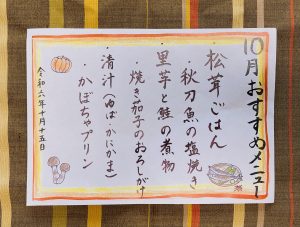 10月おすすめメニュー
・松茸ごはん
・秋刀魚の塩焼き
・里芋と鮭の煮物
・焼き茄子のおろしがけ
・清汁(ゆば・かにかま)
・かぼちゃプリン
令和六年十月十五日